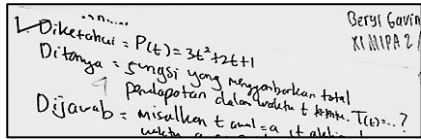 Beryl Gavin
1. Diketahui = P(t) = 3t²+2t+1
XI MIPA 2/
Ditanya = fungsi yang menggambarkan total
pendapatan dalam waktu t T(t) = ..?
Dijawab = misalkan t awal = a, t
waktu